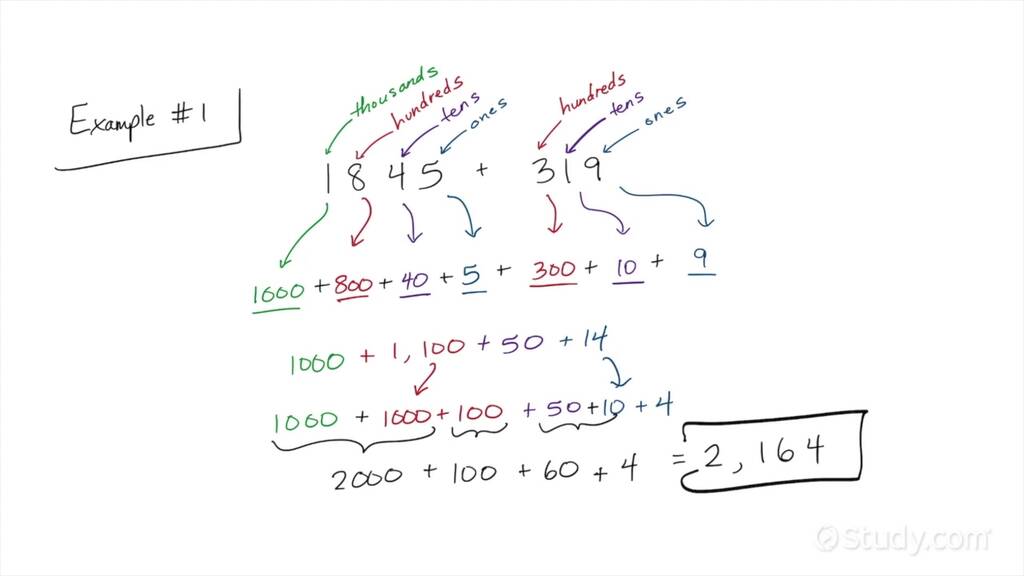 Example #1
thousands hundreds tens ones hundreds tens ones
1845 + 319
1000 + 800 + 40 + 5 + 300 + 10 + 9
1000 + 1,100 + 50 + 14
1000 + 1000 + 100 + 50 + 10 + 4
2000 + 100 + 60 + 4 = 2,164
Study.com